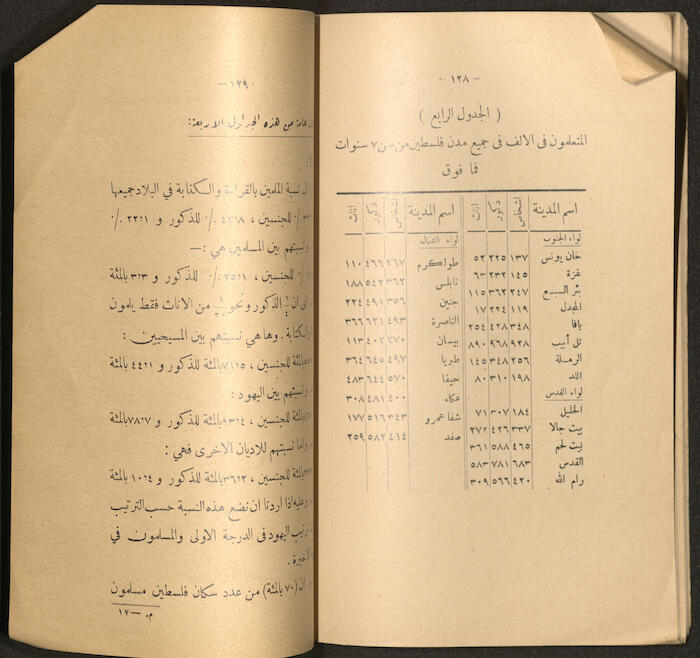 — ١٢٨ —
( الجدول الرابع )
المتعلمون فى الالف فى جميع مدن فلسطين من سن ٧ سنوات
فما فوق
اسم المدينة اشخاص ذكور اناث
لواء الجنوب
خان يونس ١٣٧ ٢٢٥ ٥٢
غزة ١٤٥ ٢٣٢ ٦٣
بئر السبع ٢٤٧ ٣٦٢ ١١٥
المجدل ١١٩ ٢٢٤ ١٧
يافا ٣٤٨ ٤٢٨ ٢٥٤
تل أبيب ٩٢٨ ٩٦٨ ٨٩٠
الرملة ٢٥٦ ٣٤٨ ١٤٥
اللد ١٩٨ ٣١٠ ٨٠
لواء القدس
الخليل ١٨٤ ٣٠٧ ٧١
بيت جالا ٣٣٧ ٤٢٦ ٢٧٢
بيت لحم ٤٦٥ ٥٨٨ ٣٦١
القدس ٦٨٣ ٧٨١ ٥٨٣
رام الله ٤٢٠ ٥٦٦ ٣٠٩
اسم المدينة اشخاص ذكور اناث
لواء الشمال
طولكرم ٢٦٧ ٤٦٦ ١١٠
نابلس ٣٦٢ ٥٤٢ ١٨٨
جنين ٣٥٦ ٤٩١ ٢٢٤
الناصرة ٤٩٣ ٦٢١ ٣٦٦
بيسان ٢٧٠ ٤٠٢ ١١٣
طبريا ٤٩٧ ٦٤٥ ٣٦٤
حيفا ٥٧٠ ٦٤٤ ٤٨٣
عكاء ٤٠٠ ٤٨١ ٣٠٨
شفا عمرو ٣٤٣ ٥١٦ ١٧٧
صفد ٤١٤ ٥٨٢ ٢٥٩
— ١٢٩ —
عامة من هذه الجداول الاربعة:
ان نسبة الملمين بالقراءة والكتابة في البلاد جميعها
٪ للجنسين ، ٤٢،٨ ٪ للذكور و ٢٢،١ ٪
ونسبتهم بين المسلمين هي :—
٪ للجنسين ، ٢٥،١ ٪ للذكور و ٣،٣ بالمئة
ان ¼ الذكور ونحو من الاناث فقط يلمون
الكتابة . وها هي نسبتهم بين المسيحيين :
بالمئة للجنسين ، ٧١،٥ بالمئة للذكور و ٤٤،١ بالمئة
ونسبتهم بين اليهود :
بالمئة للجنسين ، ٩٣،٤ بالمئة للذكور و ٧٨،٧ بالمئة
واما نسبتهم للاديان الاخرى فهي :
بالمئة للجنسين ، ٣٦،٢ بالمئة للذكور و ١٠،٤ بالمئة
وعليه اذا اردنا ان نضع هذه النسبة حسب الترتيب
ترتيب اليهود فى الدرجة الاولى والمسلمون في
الاخيرة .
ان (٧٠ بالمئة) من عدد سكان فلسطين مسلمون
م . — ١٧